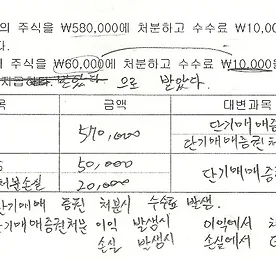 의 주식을 ₩580,000에 처분하고 수수료 ₩10,00
다.
주식을 ₩60,000에 처분하고 수수료 ₩10,000을
받았다 으로 받았다.
목 금액 대변과목
570,000 단기매매증
단기매매증권처
50,000 단기매매증
처분손실 20,000
단기매매 증권 처분시 수수료 발생.
단기매매증권처분 이익 발생시 이익에서
손실 발생시 손실에서